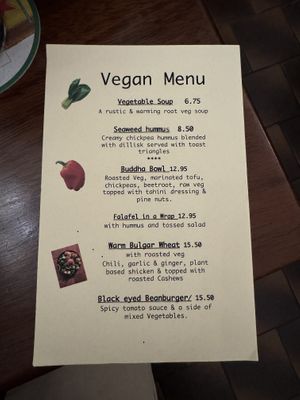 Vegan Menu
Vegetable Soup 6.75
A rustic & warming root veg soup
Seaweed hummus 8.50
Creamy chickpea hummus blended
with dillisk served with toast
triangles
****
Buddha Bowl 12.95
Roasted Veg, marinated tofu,
chickpeas, beetroot, raw veg
topped with tahini dressing &
pine nuts.
Falafel in a Wrap 12.95
with hummus and tossed salad
Warm Bulgar Wheat 15.50
with roasted veg
Chili, garlic & ginger, plant
based shicken & topped with
roasted Cashews
Black eyed Beanburger/ 15.50
Spicy tomato sauce & a side of
mixed Vegetables.